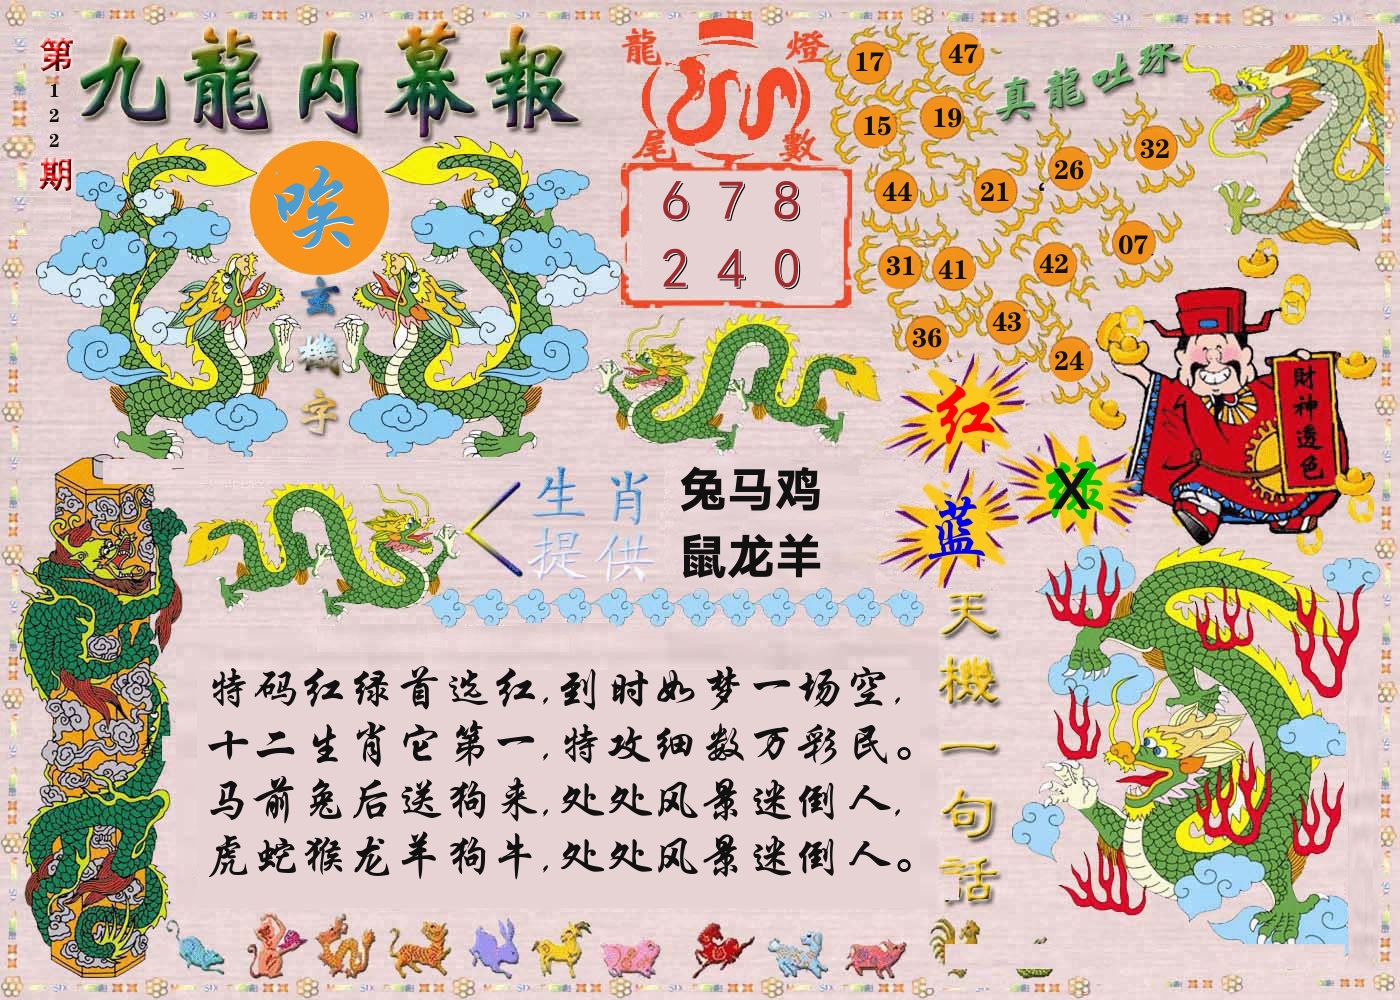 第122期
九龍内幕報
唉
玄機字
龍燈尾數
6 7 8
2 4 0
真龍吐珠
17 47
15 19
44 21 26 32
31 41 42 07
36 43 24
红
绿
X
蓝
財神透色
生肖提供
兔马鸡
鼠龙羊
特码红绿首选红,到时如梦一场空,
十二生肖它第一,特攻细数万彩民。
马前兔后送狗来,处处风景迷倒人,
虎蛇猴龙羊狗牛,处处风景迷倒人。
天機一句話